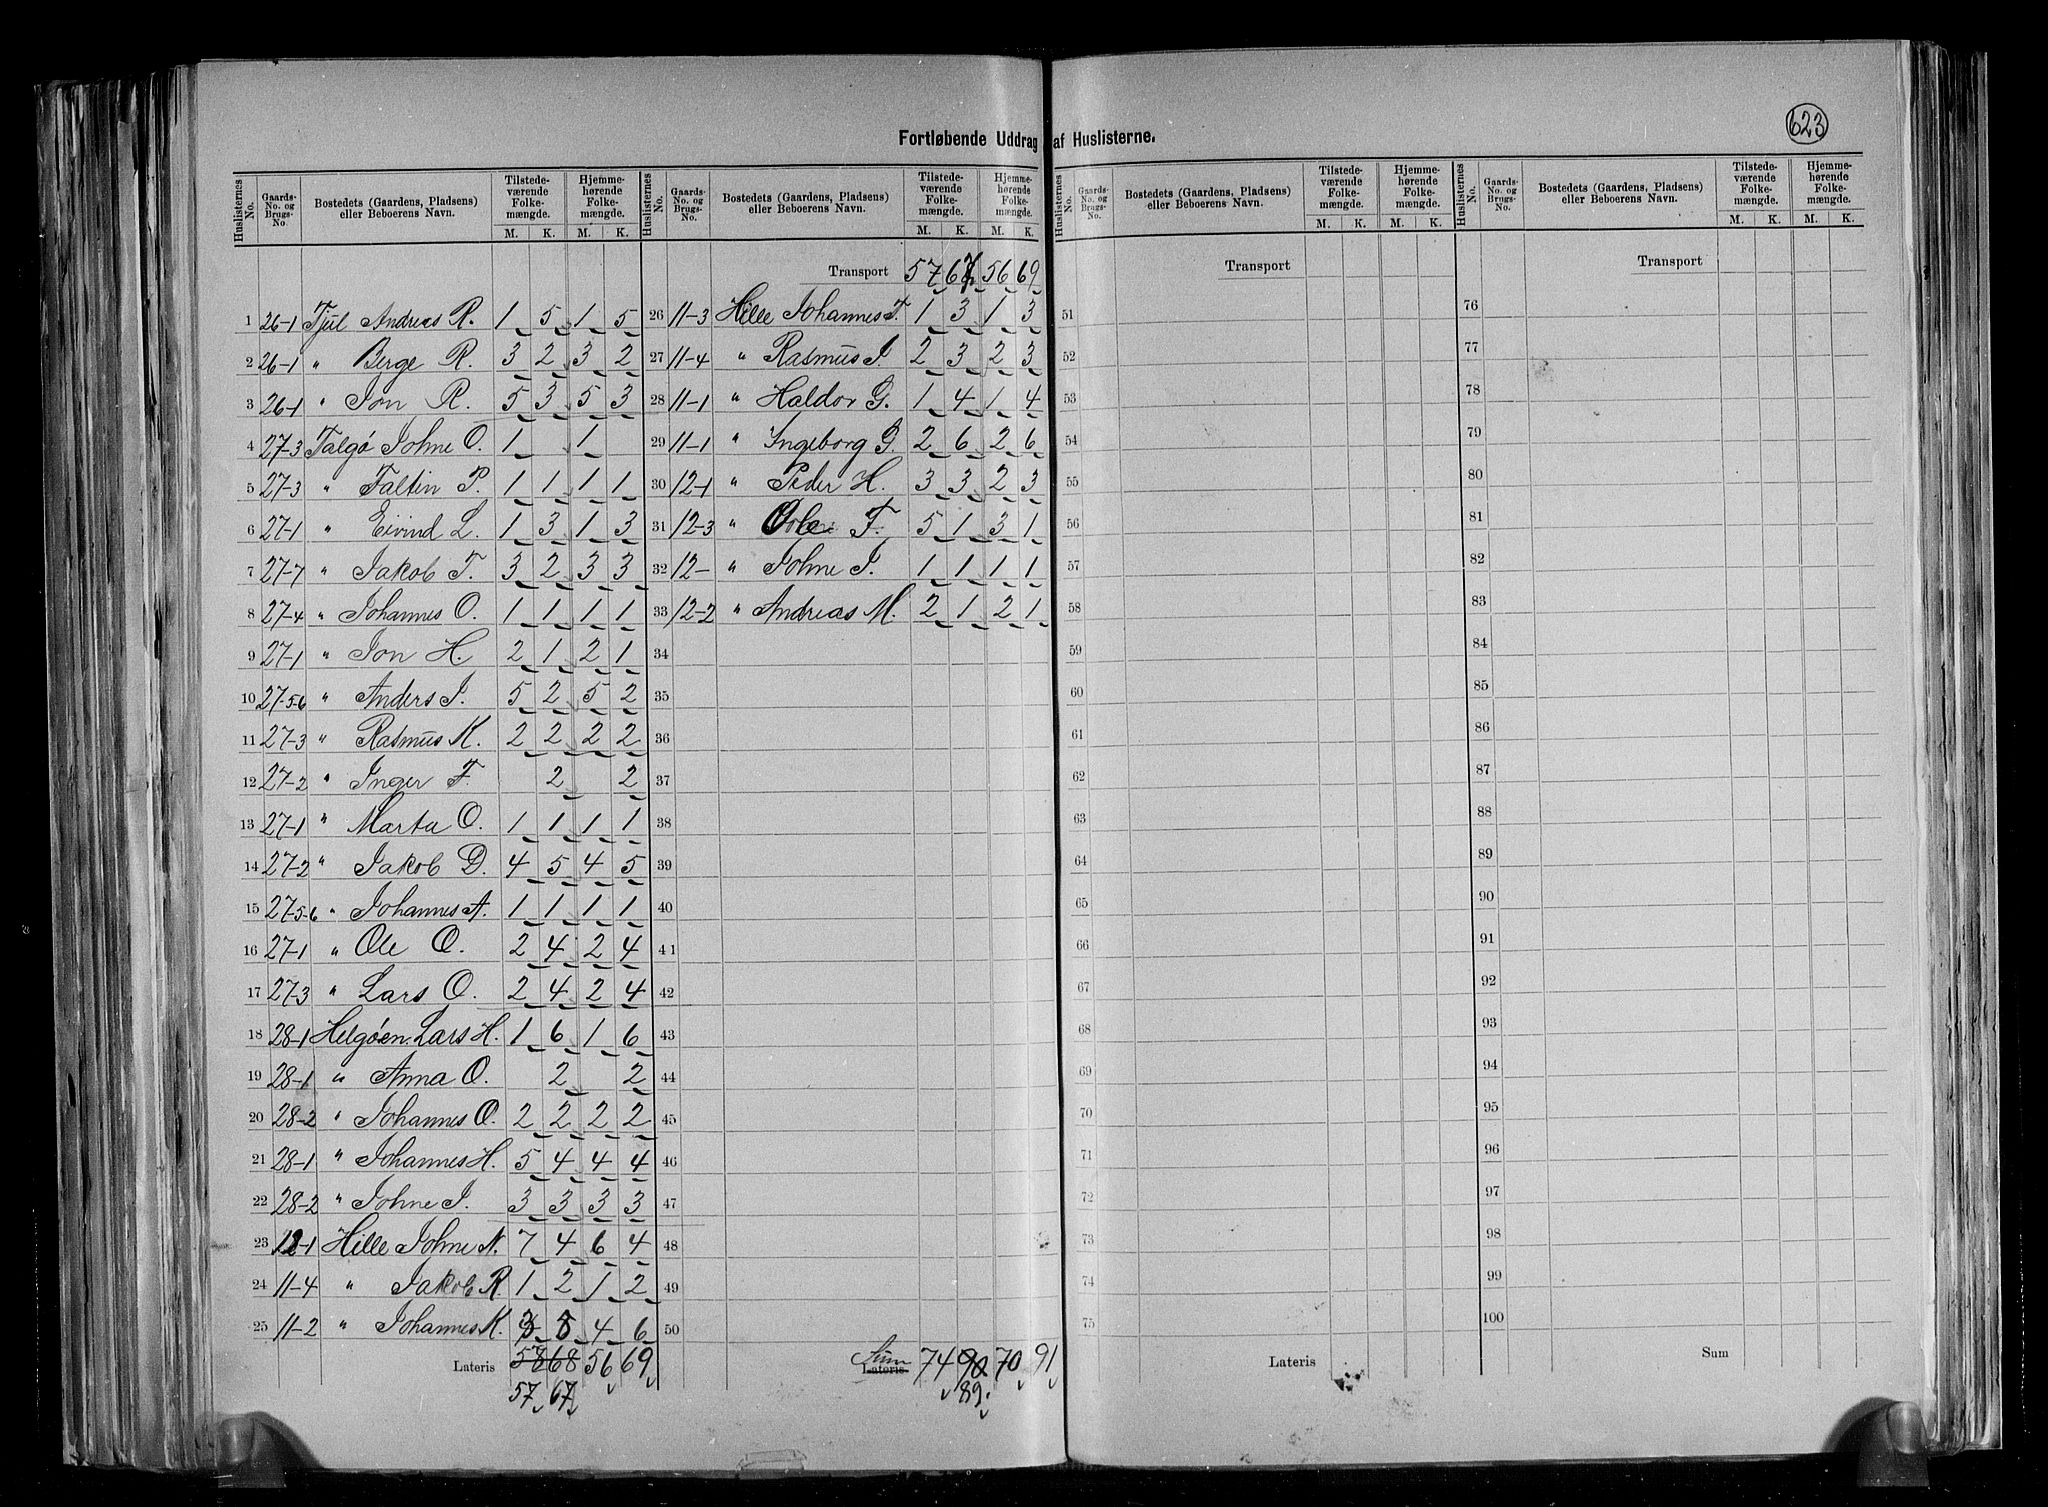 623
Fortløbende Uddrag af Huslisterne.
Huslisternes No. Gaards-No. og Brugs-No. Bostedets (Gaardens, Pladsens) eller Beboerens Navn. Tilstedeværende Folkemængde. M. K. Hjemmehørende Folkemængde. M. K.
1 26-1 Tjul Andreas R. 1 5 1 5
2 26-1 " Berge R. 3 2 3 2
3 26-1 " Jon R. 5 3 5 3
4 27-3 Talgø Johne O. 1 1
5 27-3 " Faltin P. 1 1 1 1
6 27-1 " Eivind L. 1 3 1 3
7 27-7 " Jakob T. 3 2 3 3
8 27-4 " Johannes O. 1 1 1 1
9 27-1 " Jon H. 2 1 2 1
10 27-5-6 " Anders J. 5 2 5 2
11 27-3 " Rasmus K. 2 2 2 2
12 27-2 " Inger F. 2 2
13 27-1 " Marta O. 1 1 1 1
14 27-2 " Jakob D. 4 5 4 5
15 27-5-6 " Johannes A. 1 1 1 1
16 27-1 " Ole O. 2 4 2 4
17 27-3 " Lars O. 2 4 2 4
18 28-1 Helgøen. Lars H. 1 6 1 6
19 28-1 " Anna O. 2 2
20 28-2 " Johannes O. 2 2 2 2
21 28-1 " Johannes H. 5 4 4 4
22 28-2 " Johne J. 3 3 3 3
23 12-1 Hille Johne N. 7 4 6 4
24 11-4 " Jakob R. 1 2 1 2
25 11-2 " Johannes K. 3 5 4 6
Lateris 58 68 56 69
57 67
Huslisternes No. Gaards-No. og Brugs-No. Bostedets (Gaardens, Pladsens) eller Beboerens Navn. Tilstedeværende Folkemængde. M. K. Hjemmehørende Folkemængde. M. K.
Transport 57 67 56 69
26 11-3 Hille Johannes T. 1 3 1 3
27 11-4 " Rasmus J. 2 3 2 3
28 11-1 " Haldor G. 1 4 1 4
29 11-1 " Ingeborg G. 2 6 2 6
30 12-1 " Peder H. 3 3 2 3
31 12-3 " Ole T. 5 1 3 1
32 12- " Johne J. 1 1 1 1
33 12-2 " Andreas M. 2 1 2 1
34
35
36
37
38
39
40
41
42
43
44
45
46
47
48
49
50
Sum
Lateris 74 90 70 91
89
Huslisternes No. Gaards-No. og Brugs-No. Bostedets (Gaardens, Pladsens) eller Beboerens Navn. Tilstedeværende Folkemængde. M. K. Hjemmehørende Folkemængde. M. K.
Transport
51
52
53
54
55
56
57
58
59
60
61
62
63
64
65
66
67
68
69
70
71
72
73
74
75
Lateris
Huslisternes No. Gaards-No. og Brugs-No. Bostedets (Gaardens, Pladsens) eller Beboerens Navn. Tilstedeværende Folkemængde. M. K. Hjemmehørende Folkemængde. M. K.
Transport
76
77
78
79
80
81
82
83
84
85
86
87
88
89
90
91
92
93
94
95
96
97
98
99
100
Sum